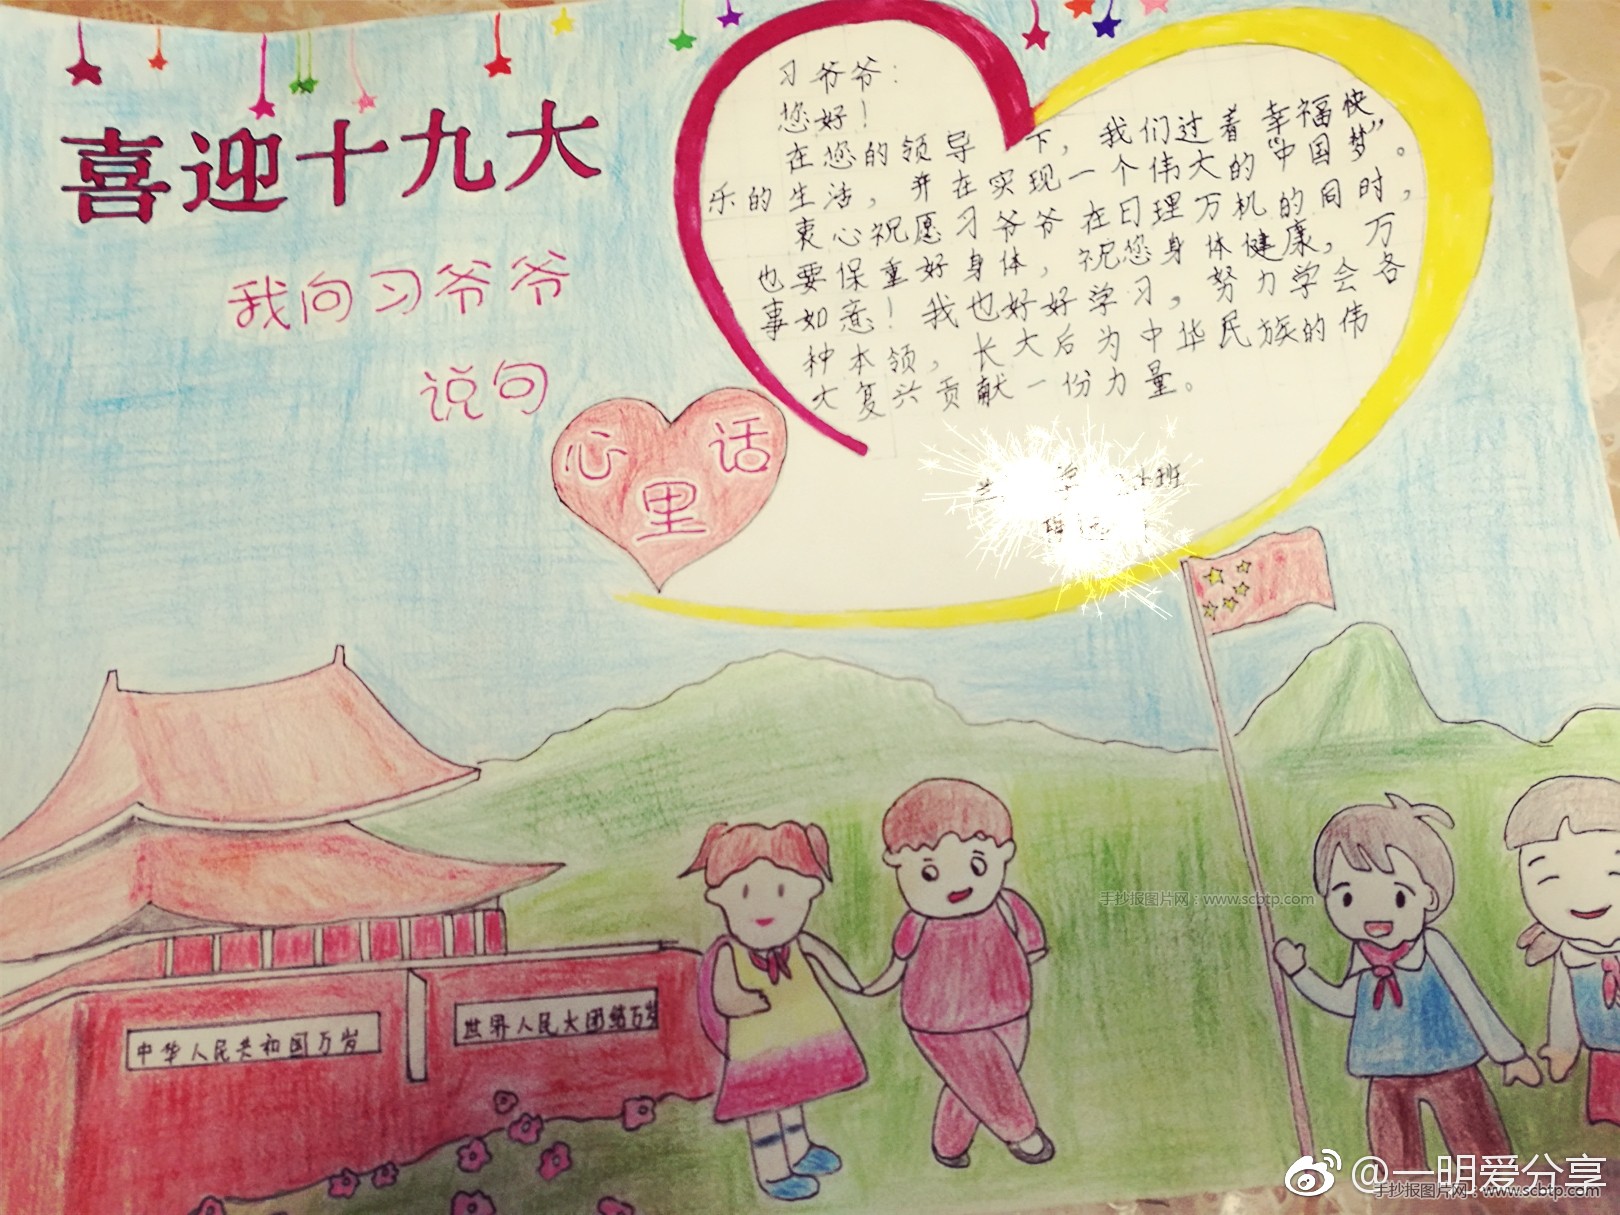 喜迎十九大
我向习爷爷
说句
心里话
习爷爷：
您好！
在您的领导下，我们过着幸福快
乐的生活，并在实现一个伟大的“中国梦”。
衷心祝愿习爷爷在日理万机的同时，
也要保重好身体，祝您身体健康，万
事如意！我也好好学习，努力学会各
种本领，长大后为中华民族的伟
大复兴贡献一份力量。
班
中华人民共和国万岁
世界人民大团结万岁
手抄报图片网：www.scbtp.com
@一明爱分享
手抄报图片网：www.scbtp.com